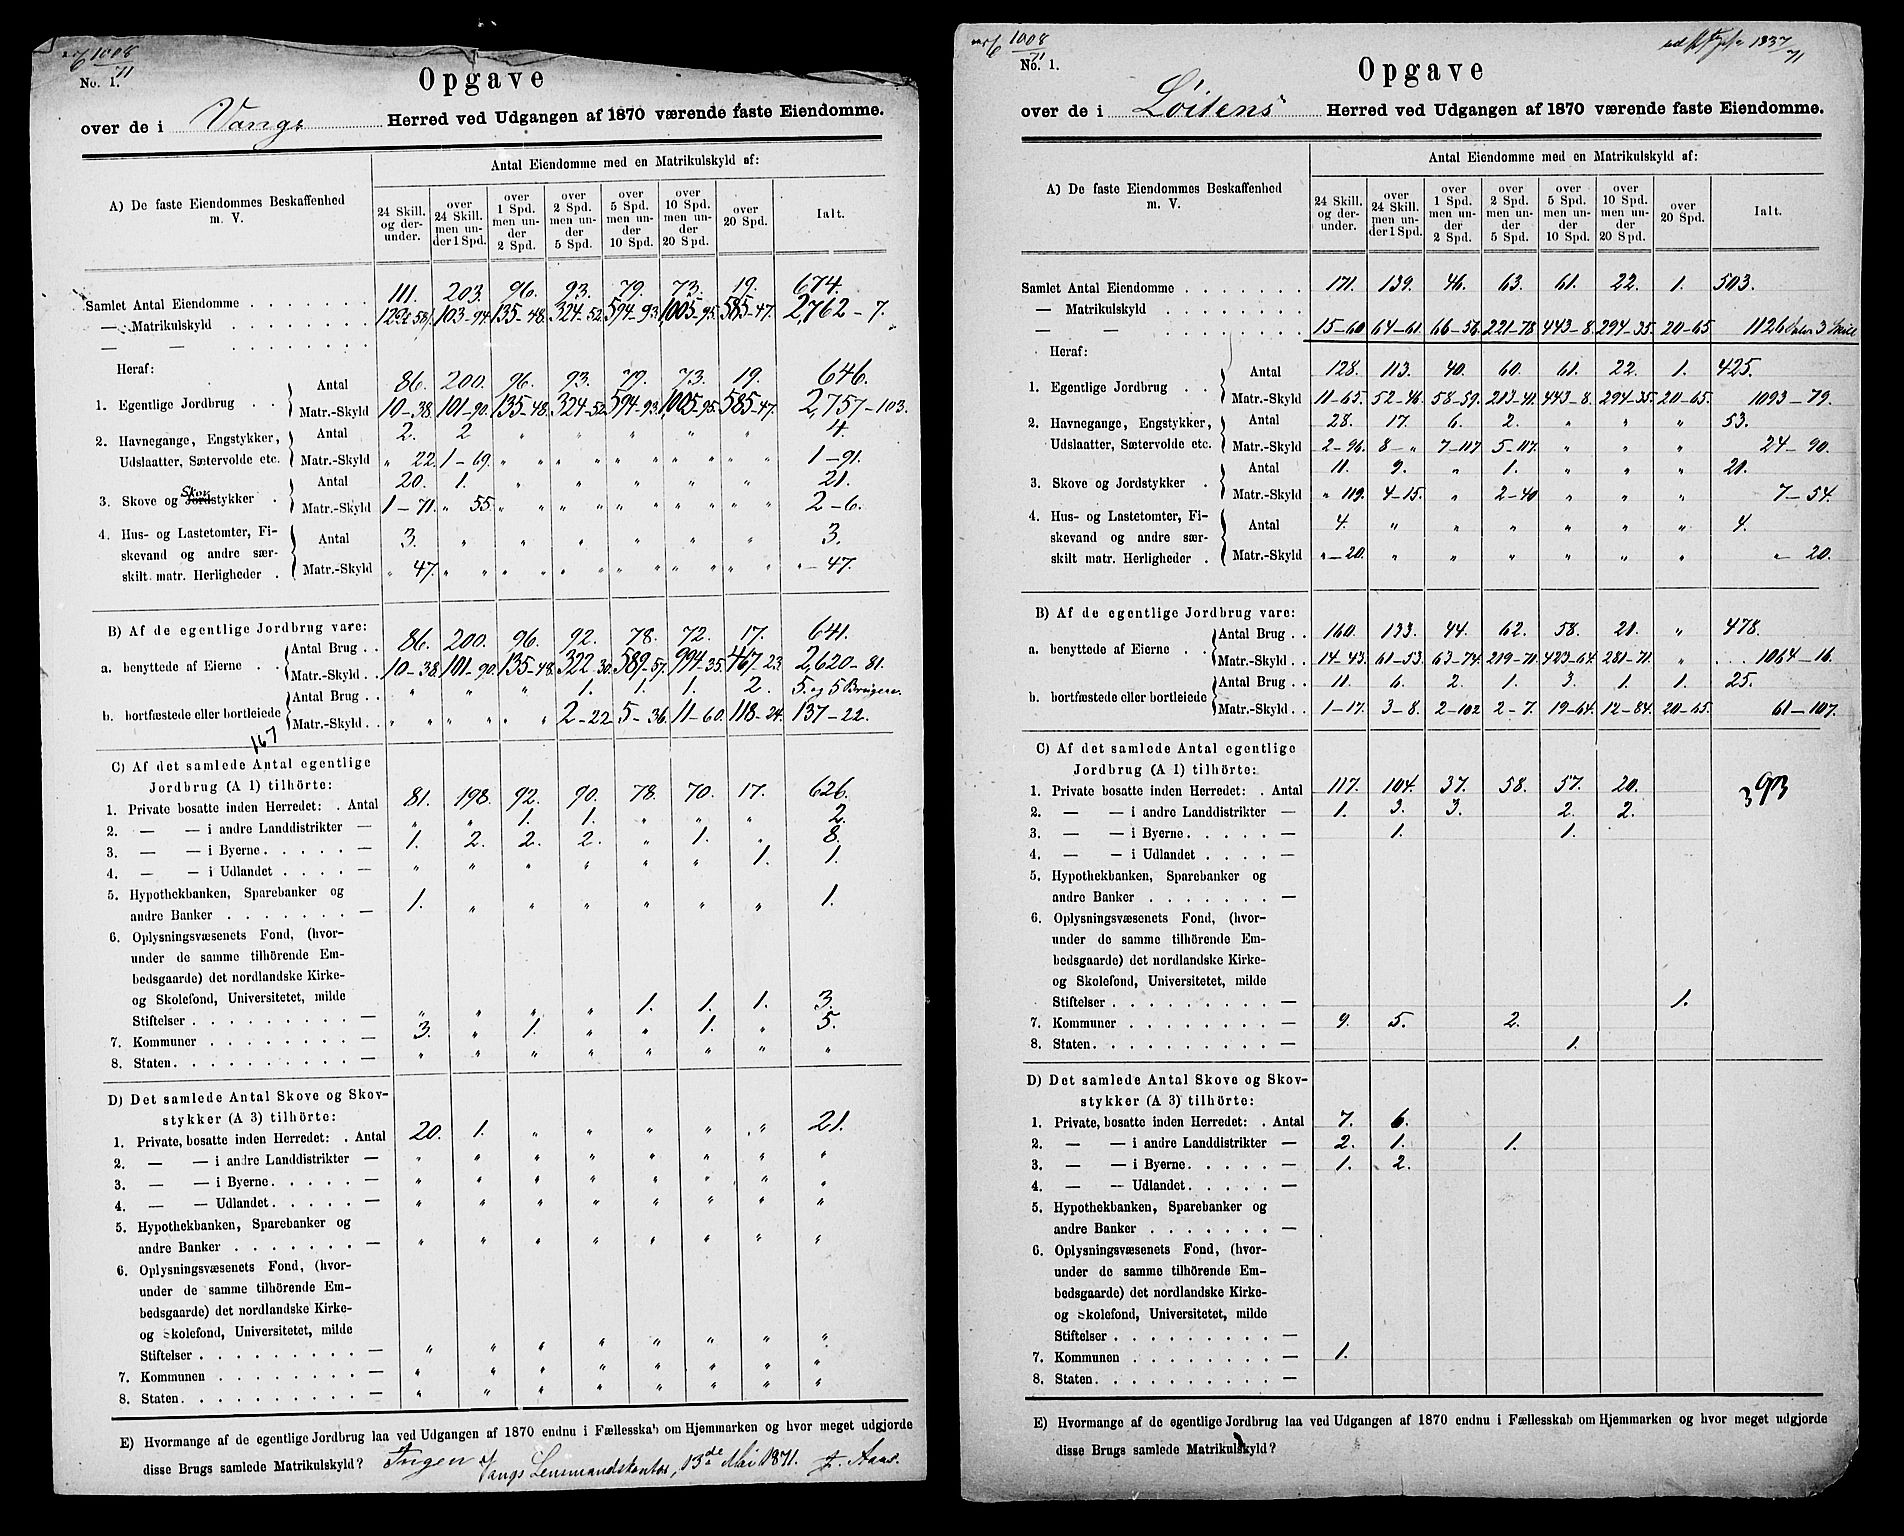 1008
71
No. 1.
Opgave
over de i Vangs Herred ved Udgangen af 1870 værende faste Eiendomme.
A) De faste Eiendommes Beskaffenhed m. V. | Antal Eiendomme med en Matrikulskyld af:
24 Skill. og derunder. | over 24 Skill. men under 1 Spd. | over 1 Spd. men under 2 Spd. | over 2 Spd. men under 5 Spd. | over 5 Spd. men under 10 Spd. | over 10 Spd. men under 20 Spd. | over 20 Spd. | Ialt.
Samlet Antal Eiendomme . . . 111. 203. 96. 93. 79. 73. 19. 674.
— Matrikulskyld . . . 103-94. 135-48. 324-52. 594-93. 1,005-95. 585-47. 2,762-7.
— — . . .
Heraf:
1. Egentlige Jordbrug . . Antal 86. 200. 96. 93. 79. 73. 19. 646.
Matr.-Skyld 10-38. 101-90. 135-48. 324-52. 594-93. 1,005-95. 585-47. 2,757-103.
2. Havnegange, Engstykker, Antal 2. 2 " " " " " 4.
Udslaatter, Sætervolde etc. Matr.-Skyld " 22. 1-69. " " " " " " " " " " 1-91.
3. Skove og Jordstykker . Skov Antal 20. 1. " " " " " 21.
Matr.-Skyld 1-71. " 55. " " " " " " " " " " 2-6.
4. Hus- og Lastetomter, Fi-
skevand og andre sær- Antal 3. " " " " " " 3.
skilt matr. Herligheder . Matr.-Skyld " 47. " " " " " " " " " " " " "-47.
B) Af de egentlige Jordbrug vare:
a. benyttede af Eierne . . Antal Brug . . 86. 200. 96. 92. 78. 72. 17. 641.
Matr.-Skyld . . 10-38. 101-90. 135-48. 322-30. 589-57. 994-35. 467-23. 2,620-81.
b. bortfæstede eller bortleiede Antal Brug . . " " " 1. 1. 1. 2. 5. og 5 Brugere.
Matr.-Skyld . . " " " " " " 2-22. 5-36. 11-60. 118-24. 137-22.
167
C) Af det samlede Antal egentlige
Jordbrug (A 1) tilhörte:
1. Private bosatte inden Herredet: . Antal 81. 198. 92. 90. 78. 70. 17. 626.
2. — — i andre Landdistrikter — " " 1. 1. " " " 2.
3. — — i Byerne . . . . . — 1. 2. 2. 2. " 1. " 8.
4. — — i Udlandet . . . . — " " " " " " 1. 1.
5. Hypothekbanken, Sparebanker og
andre Banker . . . . . . . — 1. " " " " " " 1.
6. Oplysningsvæsenets Fond, (hvor-
under de samme tilhörende Em-
bedsgaarde) det nordlandske Kirke-
og Skolefond, Universitetet, milde
Stiftelser . . . . . . . . . — " " " " 1. 1. 1. 3.
7. Kommuner . . . . . . . . — 3. " 1. " " 1. " 5.
8. Staten . . . . . . . . . . — " " " " " " " "
D) Det samlede Antal Skove og Skov-
stykker (A 3) tilhörte:
1. Private, bosatte inden Herredet: . Antal 20. 1. " " " " " 21.
2. — — i andre Landdistrikter — " " " " " " " "
3. — — i Byerne . . . . . — " " " " " " " "
4. — — Udlandet . . . . . — " " " " " " " "
5. Hypothekbanken, Sparebanker og
andre Banker . . . . . . . — " " " " " " " "
6. Oplysningsvæsenets Fond, (hvor-
under de samme tilhörende Em-
bedsgaarde) det nordlandske Kirke-
og Skolefond, Universitetet, milde
Stiftelser . . . . . . . . . — " " " " " " " "
7. Kommunen . . . . . . . . — " " " " " " " "
8. Staten . . . . . . . . . . — " " " " " " " "
E) Hvormange af de egentlige Jordbrug laa ved Udgangen af 1870 endnu i Fællesskab om Hjemmarken og hvor meget udgjorde
disse Brugs samlede Matrikulskyld? Ingen
Vangs Lensmandskontor, 13de Mai 1871. F. Aaas.
1008
71
1337
71
No. 1.
Opgave
over de i Löitens Herred ved Udgangen af 1870 værende faste Eiendomme.
A) De faste Eiendommes Beskaffenhed m. V. | Antal Eiendomme med en Matrikulskyld af:
24 Skill. og derunder. | over 24 Skill. men under 1 Spd. | over 1 Spd. men under 2 Spd. | over 2 Spd. men under 5 Spd. | over 5 Spd. men under 10 Spd. | over 10 Spd. men under 20 Spd. | over 20 Spd. | Ialt.
Samlet Antal Eiendomme . . . 171. 139. 46. 63. 61. 22. 1. 503.
— Matrikulskyld . . .
— — . . . 15-60 64-61. 66-56. 221-78 443-8. 294-35. 20-65 1126 Daler 3 Skill
Heraf:
1. Egentlige Jordbrug . . Antal 128. 113. 40. 60. 61. 22. 1. 425.
Matr.-Skyld 11-65. 52-46 58-59. 213-41. 443-8. 294-35. 20-65. 1093-79.
2. Havnegange, Engstykker, Antal 28. 17. 6. 2. " " " 53.
Udslaatter, Sætervolde etc. Matr.-Skyld 2-96. 8-" 7-117 5-117. " " " 24-90.
3. Skove og Jordstykker . Antal 11. 9. " 1. " " " 21.
Matr.-Skyld " 119. 4-15. " 2-40 " " " 7-54.
4. Hus- og Lastetomter, Fi-
skevand og andre sær- Antal 4. " " " " " " 4.
skilt matr. Herligheder . Matr.-Skyld "-20. " " " " " " "-20.
B) Af de egentlige Jordbrug vare:
a. benyttede af Eierne . . Antal Brug . . 160. 133. 44. 62. 58. 21. " 478.
Matr.-Skyld . . 14-43. 61-53. 63-74. 219-71. 423-64. 281-71. " 1064-16.
b. bortfæstede eller bortleiede Antal Brug . . 11. 6. 2. 1. 3. 1. 1. 25.
Matr.-Skyld . . 1-17. 3-8. 2-102 2-7. 19-64. 12-84. 20-65. 61-107.
C) Af det samlede Antal egentlige
Jordbrug (A 1) tilhörte:
1. Private bosatte inden Herredet: . Antal 117. 104. 37. 58. 57. 20. 393
2. — — i andre Landdistrikter — 1. 3. 3. 2. 2.
3. — — i Byerne . . . . . — 1. 1.
4. — — i Udlandet . . . . —
5. Hypothekbanken, Sparebanker og
andre Banker . . . . . . . —
6. Oplysningsvæsenets Fond, (hvor-
under de samme tilhörende Em-
bedsgaarde) det nordlandske Kirke-
og Skolefond, Universitetet, milde
Stiftelser . . . . . . . . . — 1.
7. Kommuner . . . . . . . . — 9. 5. 2.
8. Staten . . . . . . . . . . — 1.
D) Det samlede Antal Skove og Skov-
stykker (A 3) tilhörte:
1. Private, bosatte inden Herredet: . Antal 7. 6.
2. — — i andre Landdistrikter — 2. 1. 1.
3. — — i Byerne . . . . . — 1. 2.
4. — — Udlandet . . . . . —
5. Hypothekbanken, Sparebanker og
andre Banker . . . . . . . —
6. Oplysningsvæsenets Fond, (hvor-
under de samme tilhörende Em-
bedsgaarde) det nordlandske Kirke-
og Skolefond, Universitetet, milde
Stiftelser . . . . . . . . . —
7. Kommunen . . . . . . . . — 1.
8. Staten . . . . . . . . . . —
E) Hvormange af de egentlige Jordbrug laa ved Udgangen af 1870 endnu i Fællesskab om Hjemmarken og hvor meget udgjorde
disse Brugs samlede Matrikulskyld?